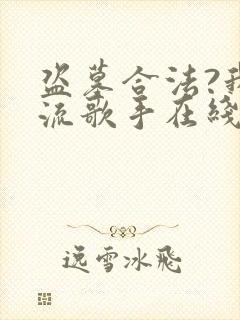 盗墓合法?我
流歌手在线
逸雪冰飛